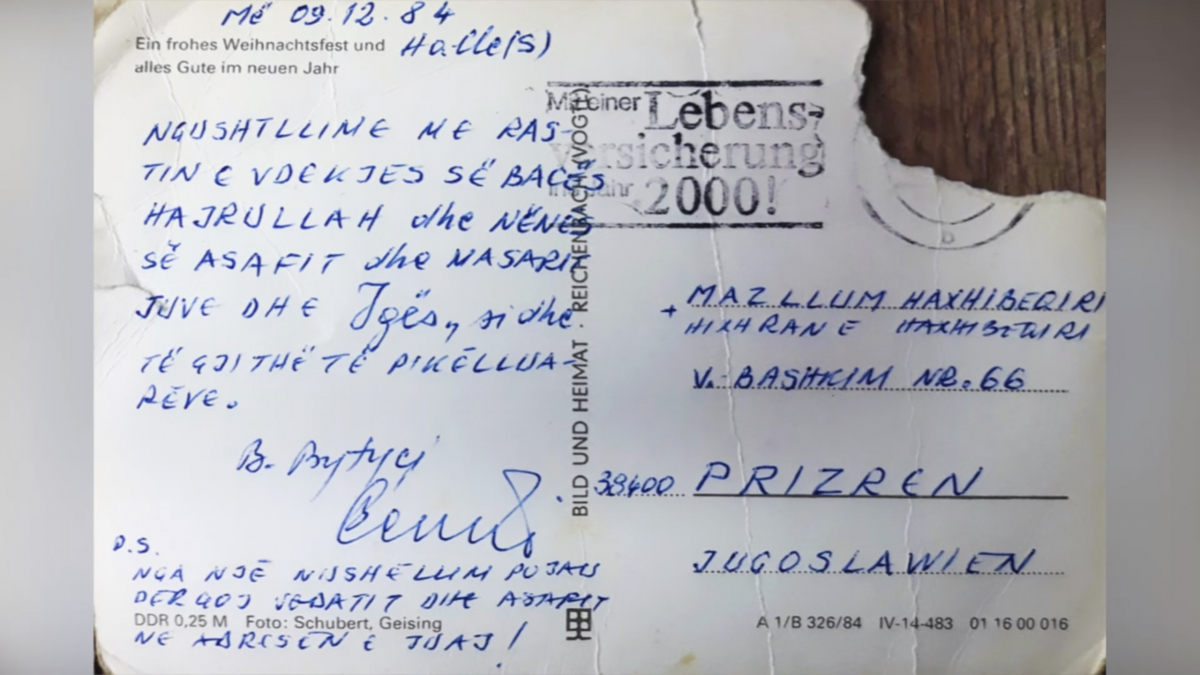 Më 09.12.84
Halle(S)
Ein frohes Weihnachtsfest und
alles Gute im neuen Jahr
NGUSHTLLIME ME RAS-
TIN E VDEKJES SË BACËS
HAJRULLAH dhe NËNËS
SË ASAFIT dhe NASARIT
JUVE DHE Igës, si dhe
TË GJITHË TË PIKËLLUA-
RËVE.
B. Bytyçi
P.S.
NGA NJË
VEDATIT DHE ASAFIT
NE ADRESEN E JUAJ!
DDR 0,25 M Foto: Schubert, Geising
BILD UND HEIMAT · REICHENBACH (VOGTL)
Mit einer Lebens-
versicherung
ins Jahr 2000!
b
+ MAZLLUM HAXHIBEQIRI
HIXHRAN E HAXHIBEQIRI
V. BASHKIM NR. 66
38400 PRIZREN
JUGOSLAWIEN
A 1/B 326/84 IV-14-483 01 16 00 016